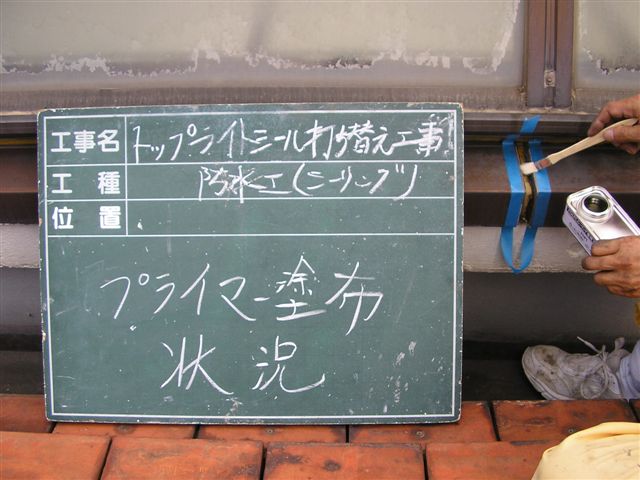 工事名 トップライトシール打ち替え工事
工種 防水工(シーリング)
位置
プライマー塗布
状況